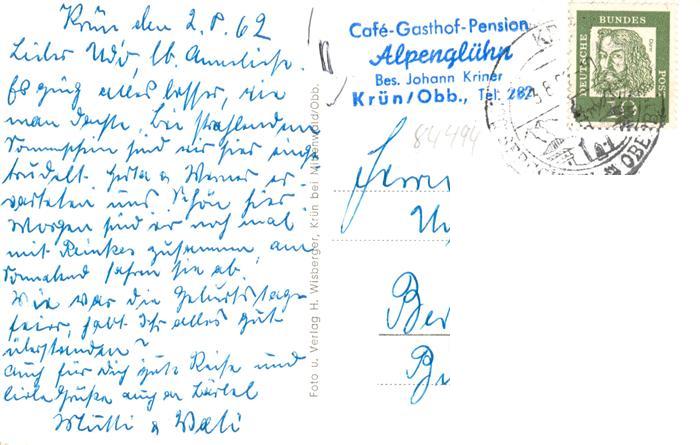 Krün den 2.8.62
Lieber Udo, lb. Annelise.
Es ging alles besser, wie
man dachte. Bei strahlendem
Sonnenschein sind wir hier einge
trudelt. Herta u Werner er-
warteten uns. Schön hier.
Morgen sind wir noch mal
mit Reinkes zusammen, am
Sonnabend fahren sie ab.
Wie war die Geburtstags-
feier, habt Ihr alles gut
überstanden?
Auch für Dich gute Reise und
liebe Grüße auch an Bärbel
Mutti u Vati
Foto u. Verlag H. Wisberger, Krün bei Mittenwald/Obb.
Café-Gasthof-Pension
Alpenglühn
Bes. Johann Kriner
Krün/Obb., Tel. 282
84494
DEUTSCHE BUNDESPOST
Dürer
10
Herrn
U
Ber
Be